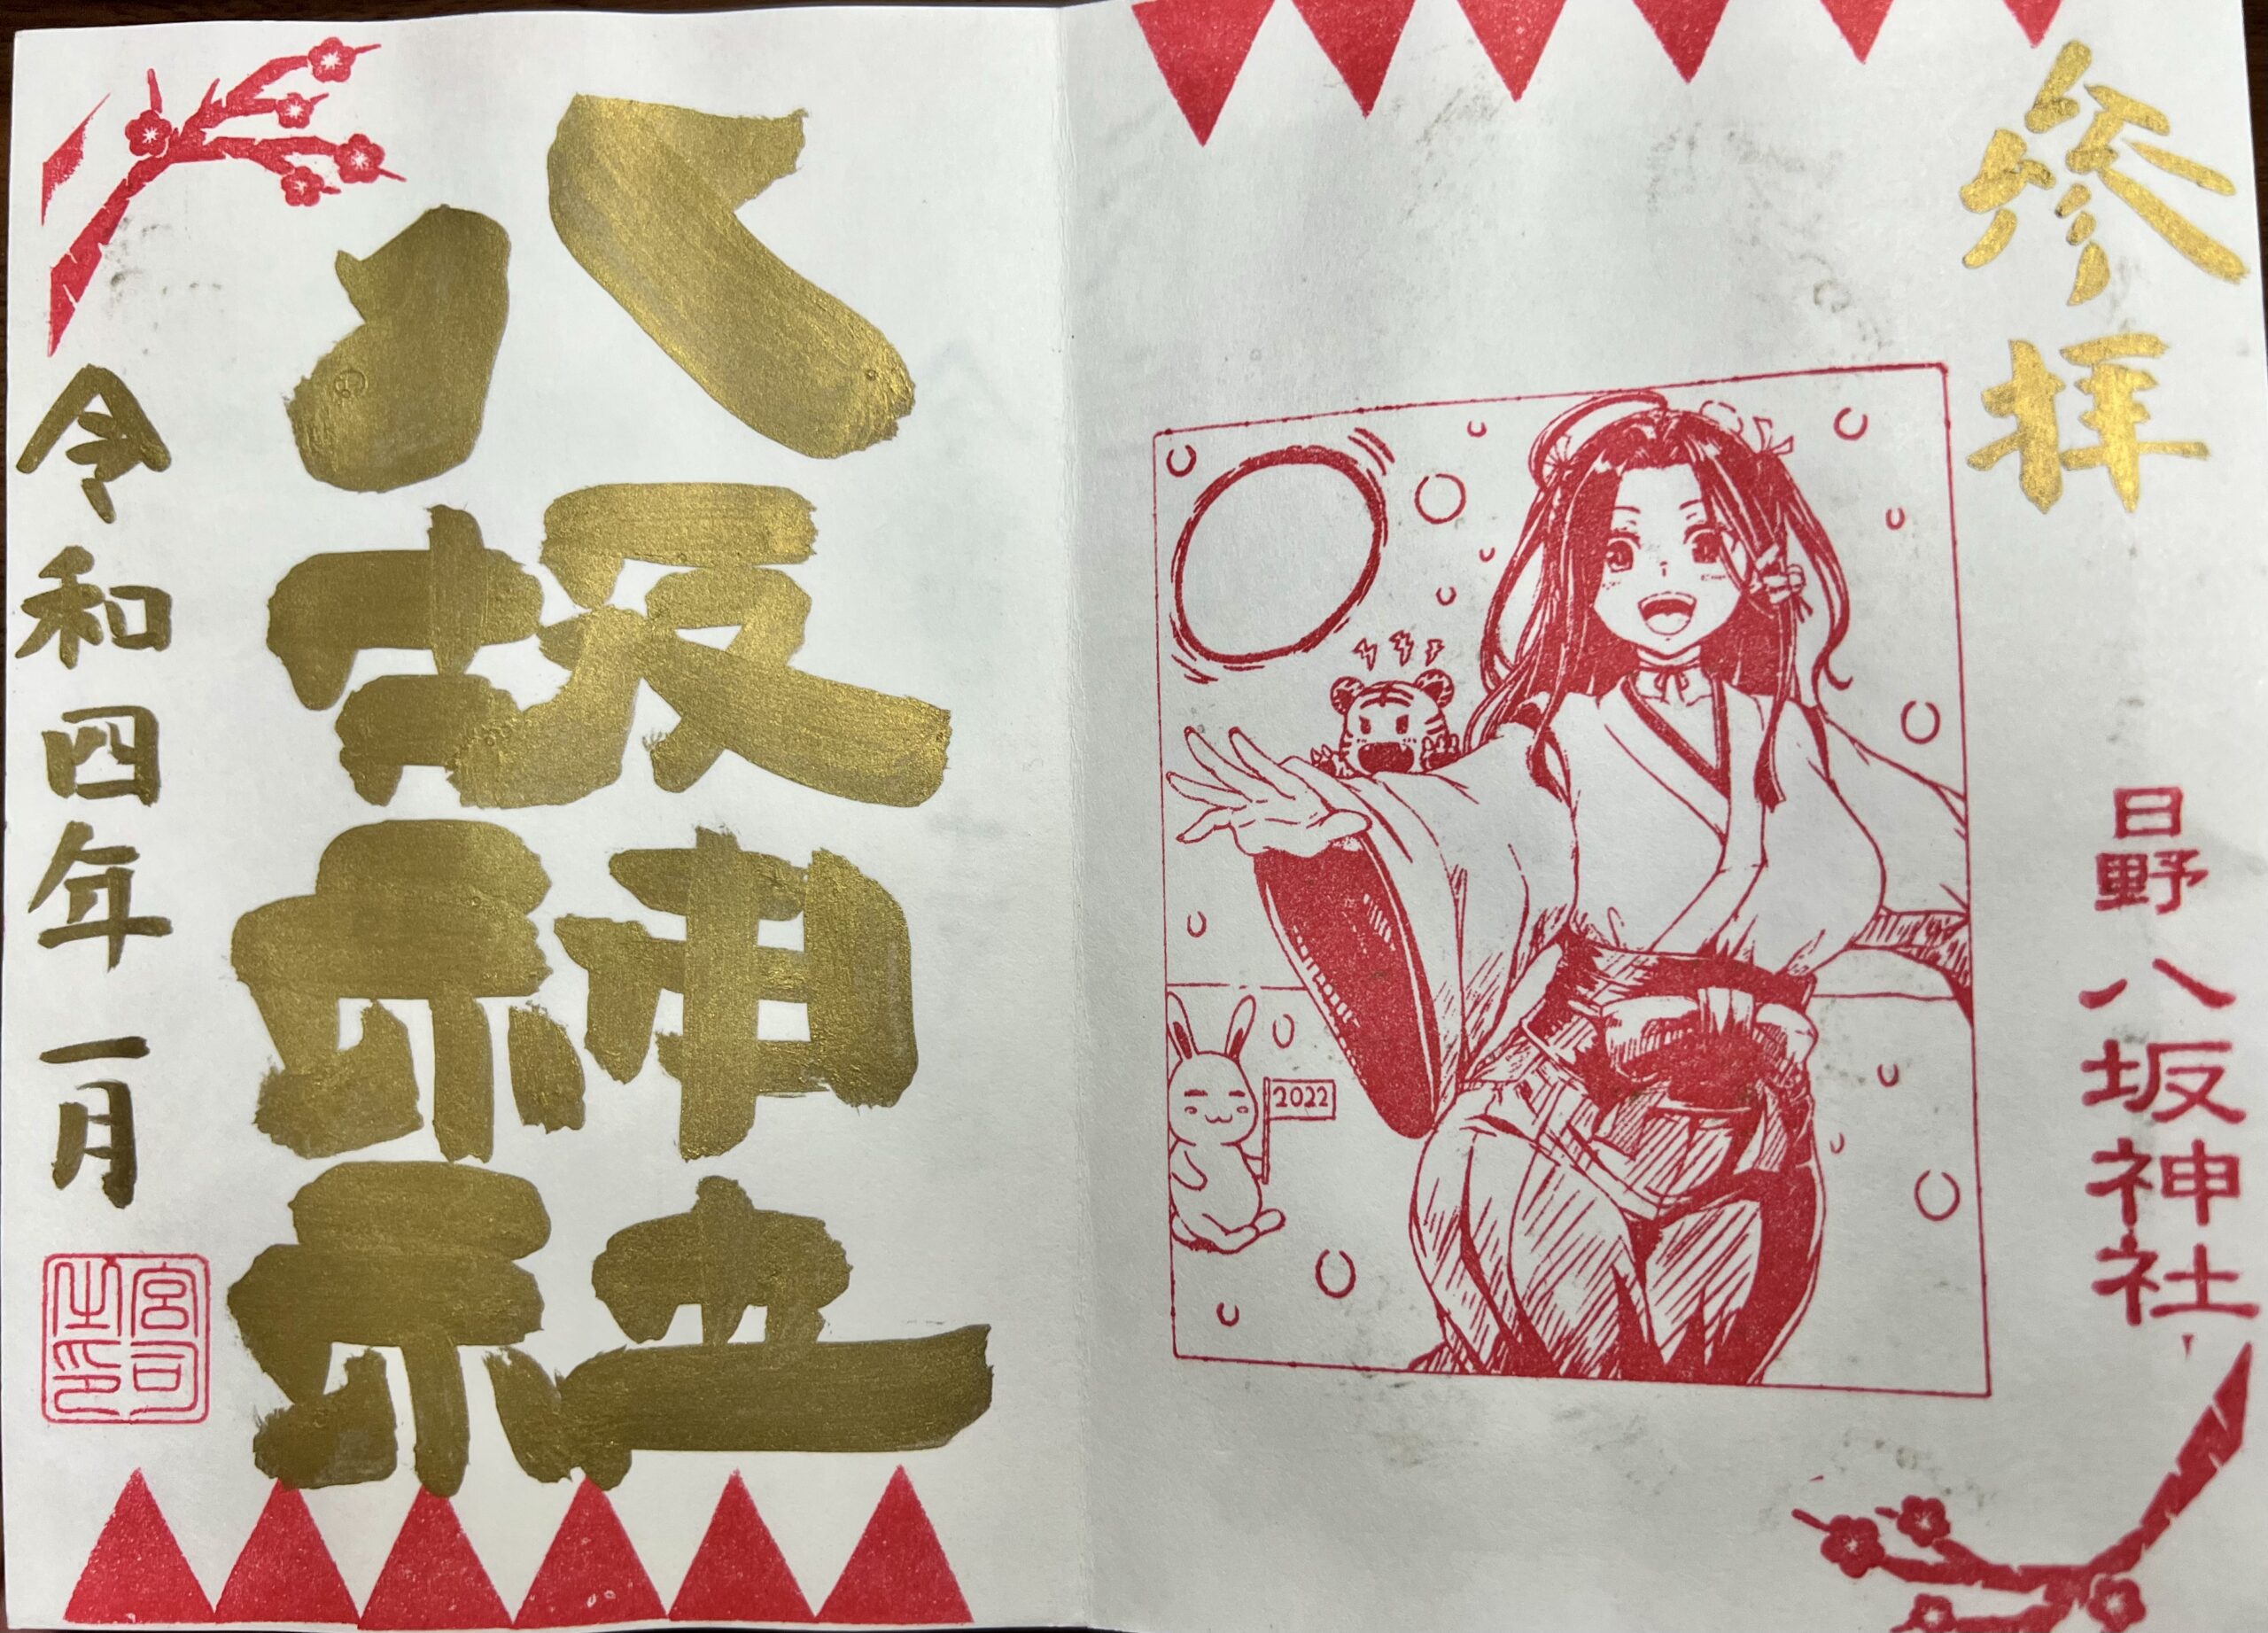 参拝
日野八坂神社
2022
八坂神社
令和四年一月
宮司
之印